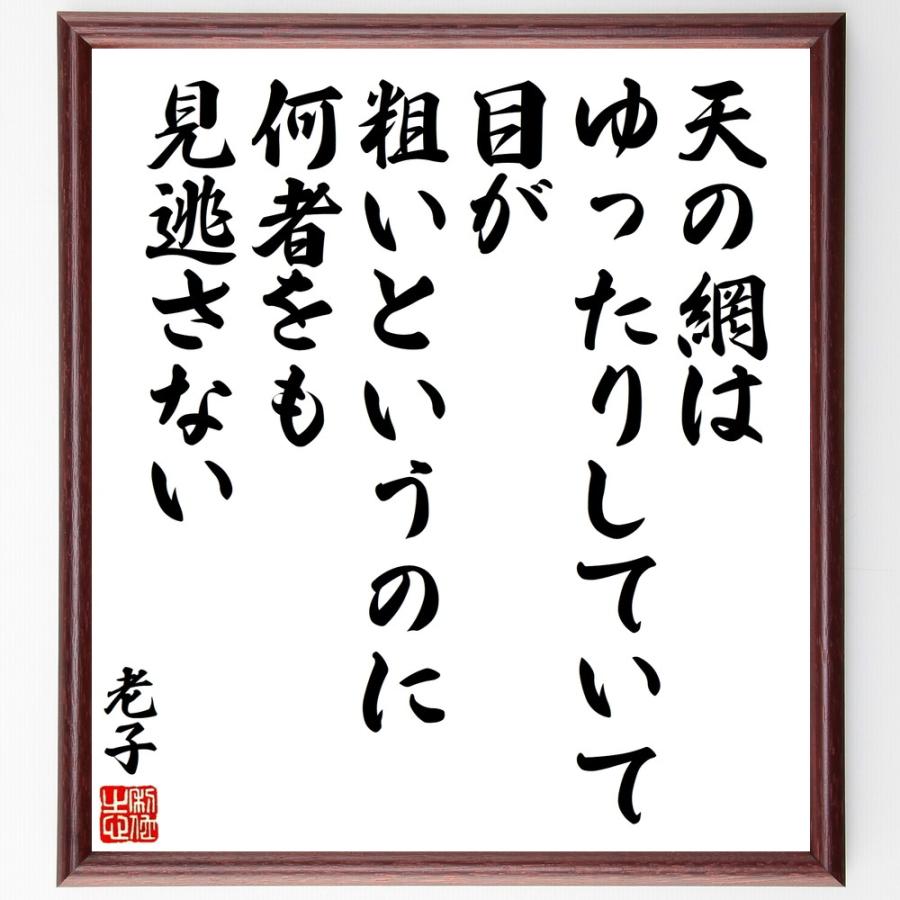 天の網は
ゆったりしていて
目が
粗いというのに
何者をも
見逃さない
老子